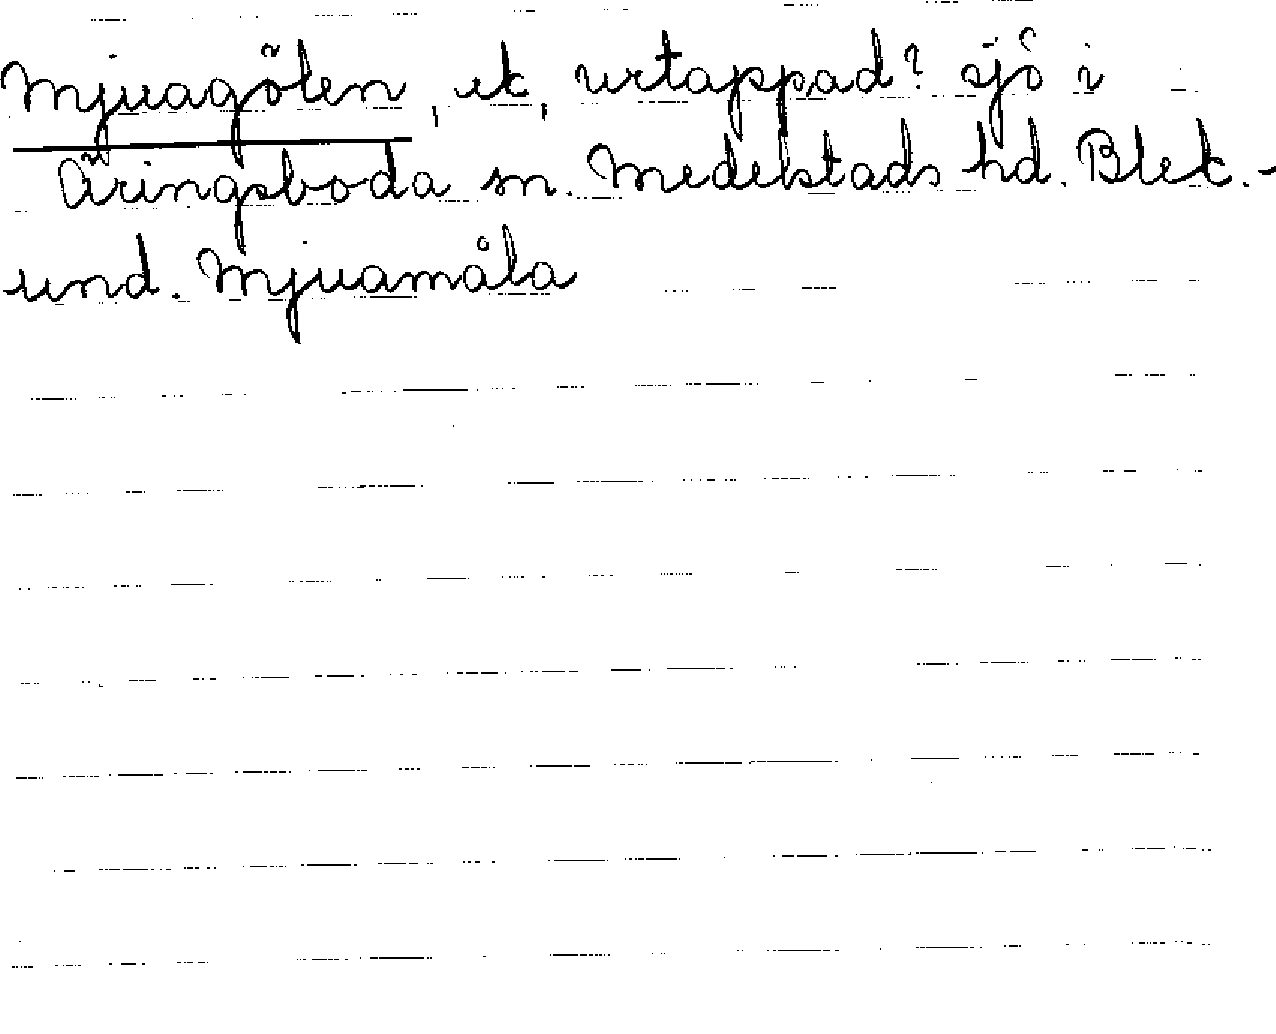 Mjuagölen, ek, urtappad? sjö i
Öringsboda sn. Medelstads hd. Blek.-
und. Mjuamåla